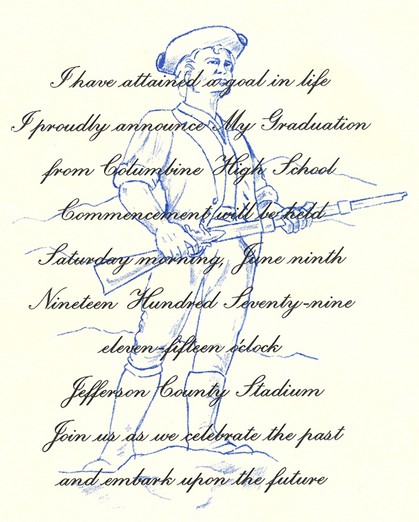 I have attained a goal in life
I proudly announce My Graduation
from Columbine High School
Commencement will be held
Saturday morning, June ninth
Nineteen Hundred Seventy-nine
eleven-fifteen o'clock
Jefferson County Stadium
Join us as we celebrate the past
and embark upon the future